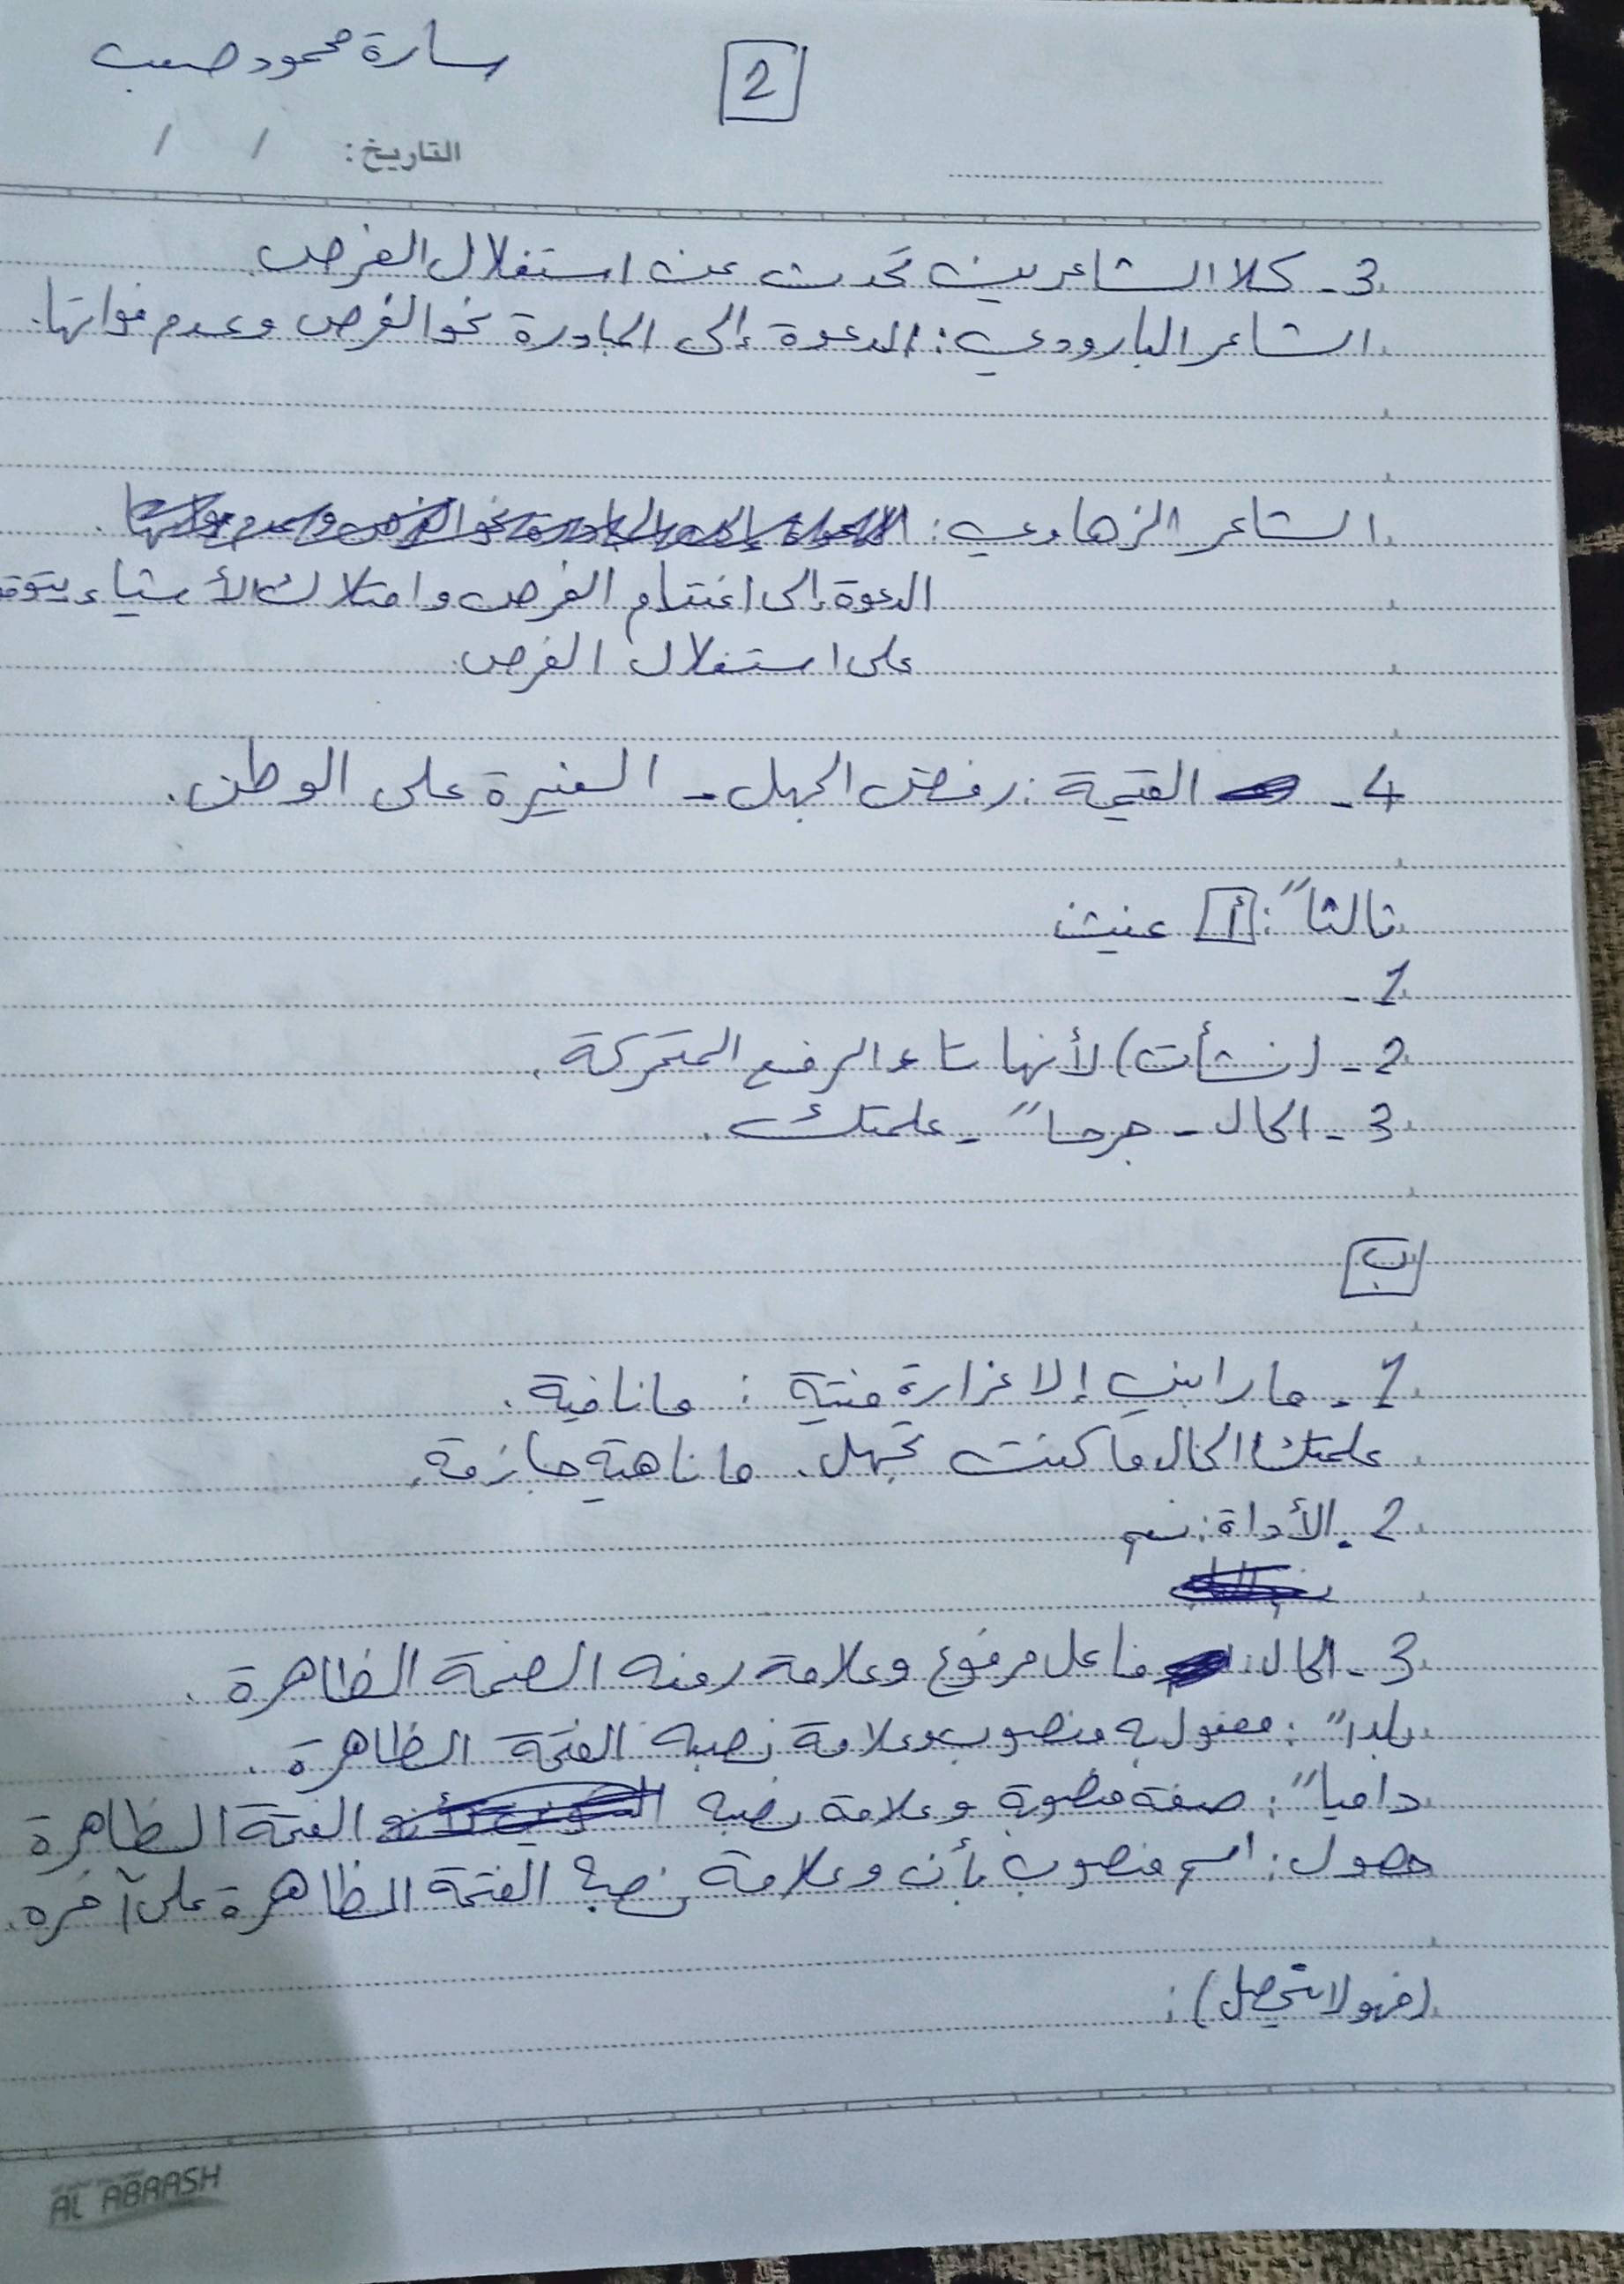 سارة محمود صعب
2
التاريخ: / /
3- كلا الشاعرين تحدث عن استغلال الفرص.
الشاعر البارودي: الدعوة إلى المبادرة نحو الفرص وعدم فواتها.
الشاعر الزهاوي:
الدعوة إلى اغتنام الفرص وامتلاك الأشياء يتوقف
على استغلال الفرص.
4- القيمة: رفض الجهل - الغيرة على الوطن.
ثالثاً: أ
1-
2- (نشأت) لأنها تاء الرفع المتحركة.
3- الحال - جرحاً - علمتك.
ب
1- ما رابني إلا غرارة فتية: ما نافية.
علمتك الحال ما كنت تجهل. ما ناهية جازمة.
2- الأداة: نعم
3- الحال: فاعل مرفوع وعلامة رفعه الضمة الظاهرة.
بلداً: مفعول به منصوب وعلامة نصبه الفتحة الظاهرة.
دامياً: صفة منصوبة وعلامة نصبه الفتحة الظاهرة
حصول: اسم منصوب بأن وعلامة نصبه الفتحة الظاهرة على آخره.
(فهو لا يتحصل):
AL ABRASH